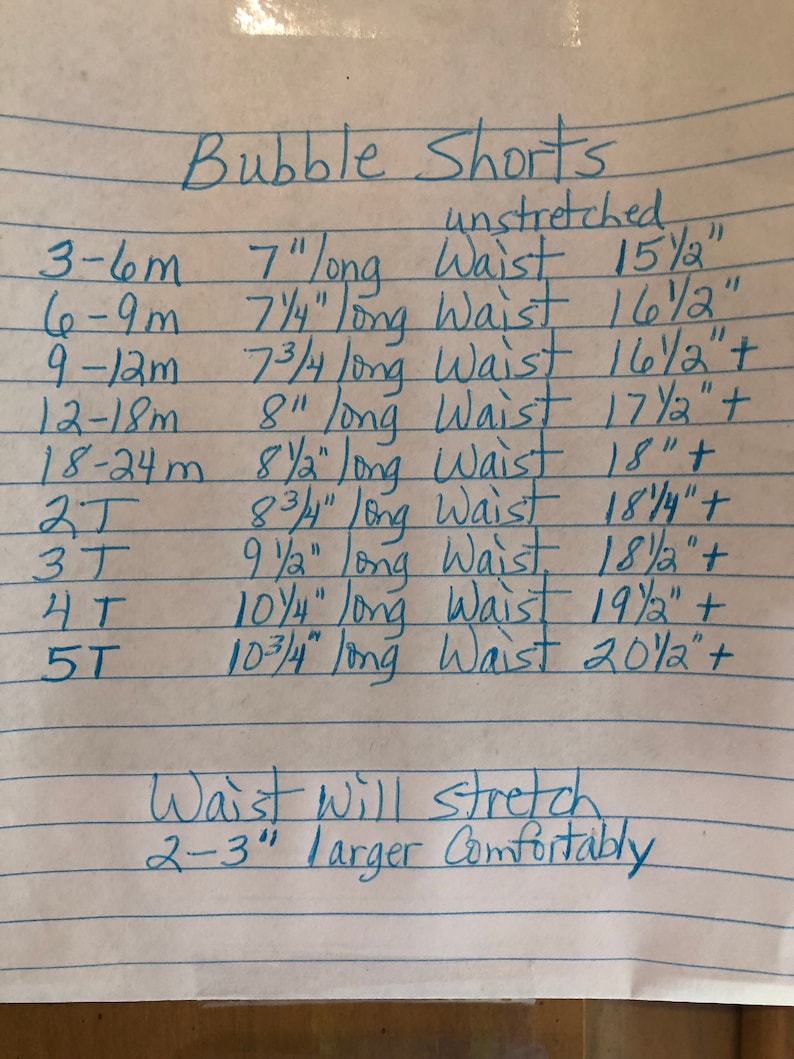 Bubble Shorts
unstretched
3-6m 7" long Waist 15 1/2"
6-9m 7 1/4" long Waist 16 1/2"
9-12m 7 3/4 long Waist 16 1/2" +
12-18m 8" long Waist 17 1/2" +
18-24m 8 1/2" long Waist 18" +
2T 8 3/4" long Waist 18 1/4" +
3T 9 1/2" long Waist 18 1/2" +
4T 10 1/4" long Waist 19 1/2" +
5T 10 3/4" long Waist 20 1/2" +
Waist will stretch
2-3" larger Comfortably